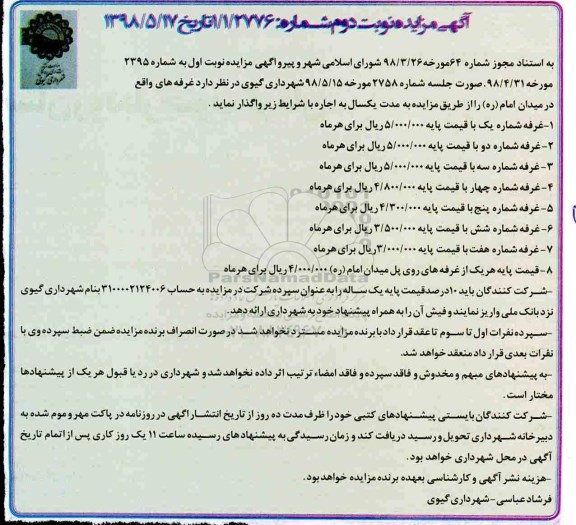 آگهی مزایده نوبت دوم شماره: ۱/۱/۲۷۷۶ تاریخ ۱۳۹۸/۵/۱۷
به استناد مجوز شماره ۶۴ مورخه ۹۸/۳/۲۶ شورای اسلامی شهر و پیرو آگهی مزایده نوبت اول به شماره ۲۳۹۵
مورخه ۹۸/۴/۳۱. صورت جلسه شماره ۲۷۵۸ مورخه ۹۸/۵/۱۵ شهرداری گیوی در نظر دارد غرفه های واقع
در میدان امام (ره) را از طریق مزایده به مدت یکسال به اجاره با شرایط زیر واگذار نماید.
۱-غرفه شماره یک با قیمت پایه ۵/۰۰۰/۰۰۰ ریال برای هر ماه
۲-غرفه شماره دو با قیمت پایه ۵/۰۰۰/۰۰۰ ریال برای هر ماه
۳-غرفه شماره سه با قیمت پایه ۵/۰۰۰/۰۰۰ ریال برای هر ماه
۴-غرفه شماره چهار با قیمت پایه ۴/۸۰۰/۰۰۰ ریال برای هر ماه
۵-غرفه شماره پنج با قیمت پایه ۴/۳۰۰/۰۰۰ ریال برای هر ماه
۶-غرفه شماره شش با قیمت پایه ۳/۵۰۰/۰۰۰ ریال برای هر ماه
۷-غرفه شماره هفت با قیمت پایه ۳/۰۰۰/۰۰۰ ریال برای هر ماه
۸-قیمت پایه هر یک از غرفه های روی پل میدان امام (ره) ۴/۰۰۰/۰۰۰ ریال برای هر ماه
ParsNamadData
-شرکت کنندگان باید ۱۰ درصد قیمت پایه یک ساله را به عنوان سپرده شرکت در مزایده به حساب ۳۱۰۰۰۰۲۱۲۴۰۰۶ بنام شهرداری گیوی
نزد بانک ملی واریز نمایند و فیش آن را به همراه پیشنهاد خود به شهرداری ارائه دهد.
-سپرده نفرات اول تا سوم تا عقد قرارداد با برنده مزایده مسترد نخواهد شد. در صورت انصراف برنده مزایده ضمن ضبط سپرده وی با
نفرات بعدی قرارداد منعقد خواهد شد.
-به پیشنهادهای مبهم و مخدوش و فاقد سپرده و فاقد امضاء ترتیب اثر داده نخواهد شد و شهرداری در رد یا قبول هر یک از پیشنهادها
مختار است.
-شرکت کنندگان بایستی پیشنهادهای کتبی خود را ظرف مدت ده روز از تاریخ انتشار آگهی در روزنامه در پاکت مهر و موم شده به
دبیرخانه شهرداری تحویل و رسید دریافت کند و زمان رسیدگی به پیشنهادهای رسیده ساعت ۱۱ یک روز کاری پس از اتمام تاریخ
آگهی در محل شهرداری خواهد بود.
-هزینه نشر آگهی و کارشناسی بعهده برنده مزایده خواهد بود.
فرشاد عباسی-شهرداری گیوی